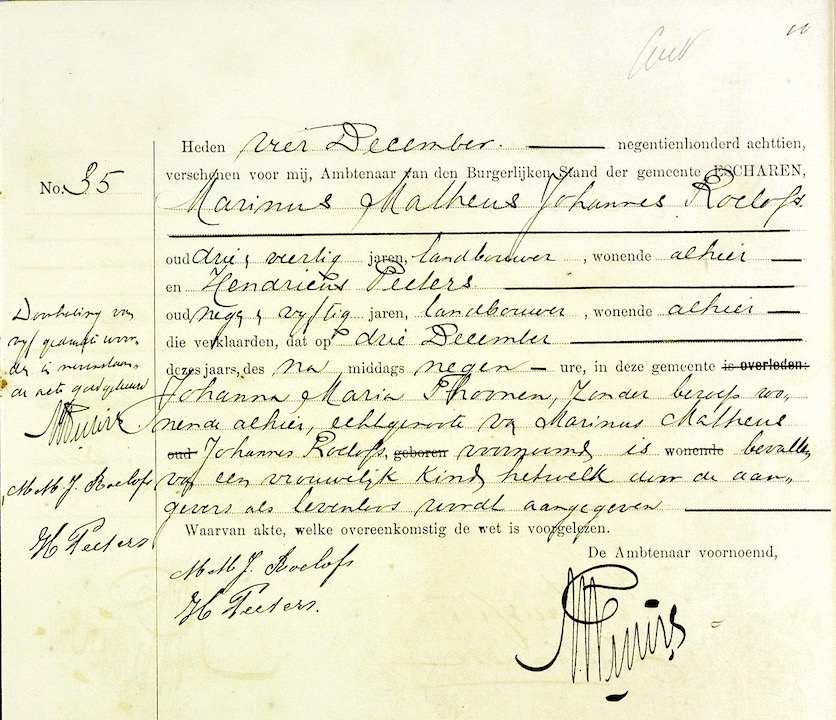 Heden vier December. negentienhonderd achttien,
verschenen voor mij, Ambtenaar van den Burgerlijken Stand der gemeente ESCHAREN,
No. 35
Marinus Matheus Johannes Roelofs.
oud drie & veertig jaren, landbouwer, wonende alhier
en Hendricus Peeters
oud nege & vyftig jaren, landbouwer, wonende alhier
die verklaarden, dat op drie December
dezes jaars, des na middags negen ure, in deze gemeente is overleden:
Johanna Maria Thoonen, zonder beroep wo-
nende alhier, echtgenoote van Marinus Matheus
oud Johannes Roelofs, geboren voornoemd is wonende bevallen
van een vrouwelijk kind, hetwelk door de aan-
gevers als levenloos wordt aangegeven
Waarvan akte, welke overeenkomstig de wet is voorgelezen.
De Ambtenaar voornoemd,
M. M. J. Roelofs
H Peeters.
Doorhaling van
vyf gedrukte woor-
den in nevenstaan-
de acte goedgekeurd
M. M. J. Roelofs
H Peeters